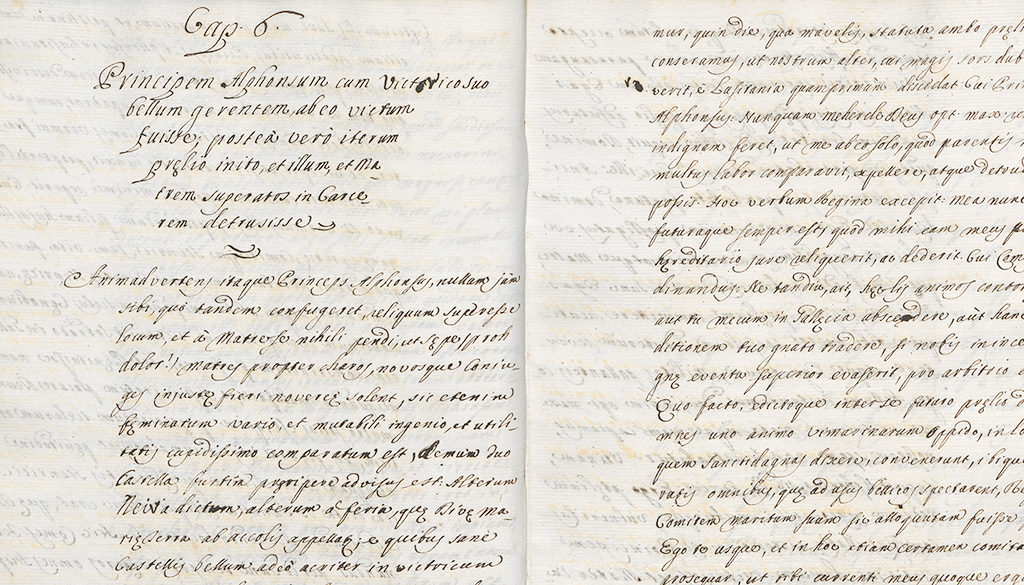 Cap. 6.
Principem Alphonsum cum Victrico suo
bellum gerentem, ab eo victum
fuisse; posteà verò iterum
pręlio inito, et illum, et Ma-
trem superatos in Carce-
rem detrusisse
Animadvertens itaque Princeps Alphonsus, nullum jàm
sibi, quò tandem confugeret, reliquum superesse
locum, et à Matre se nihili pendi, ut sępe, proh
dolor! matres propter charos, novosque Conju-
ges injustę fieri novercę solent, sic etenim
fęminarum vario, et mutabili ingenio, et utili-
tatis cupidissimo comparatum est, demum duo
Castella furtim pręripere advisus est. Alterum
Neiva dictum, alterum à feria, quę Divę Ma-
rię Serra ab accolis appellata; e quibus sanè
Castellis bellum adeò acriter in victricum
mur, quin die, qua mavelis, statuta ambo
conseramus, ut nostrum alter, cui magis sors
verit, è Lusitania quamprimum discedat. Cui
Alphonsus: Nunquam mehercle Deus opt. max.
indignam feret, ut me ab eo solo, quod parentis
multus labor comparavit, expellere, atque
possis. Hoc verbum Regina excepit: mea
futuraque semper est; quod mihi eam meus
hęreditario jure reliquerit, ac dederit. Cui
dinandus: Ne tandiu, ait, his animos
aut tu mecum in Gallęcia abscendere, aut
detionem tuo gnato tradere, si nobis in
eventu superior evaserit, pro arbitrio
Quo facto, edictoque inter se futuro pręlio
mnes uno animo Vimarenarum Oppido, in
quem Sanctidagnas dixere, convenerunt, ibique
ratis omnibus, quę ad usus bellicos spectarent,
Comitem maritum suum sic alloquutam fuisse
Ego te usque, et in hoc etiam certamen
prosequar, ut tibi currenti meus quoque